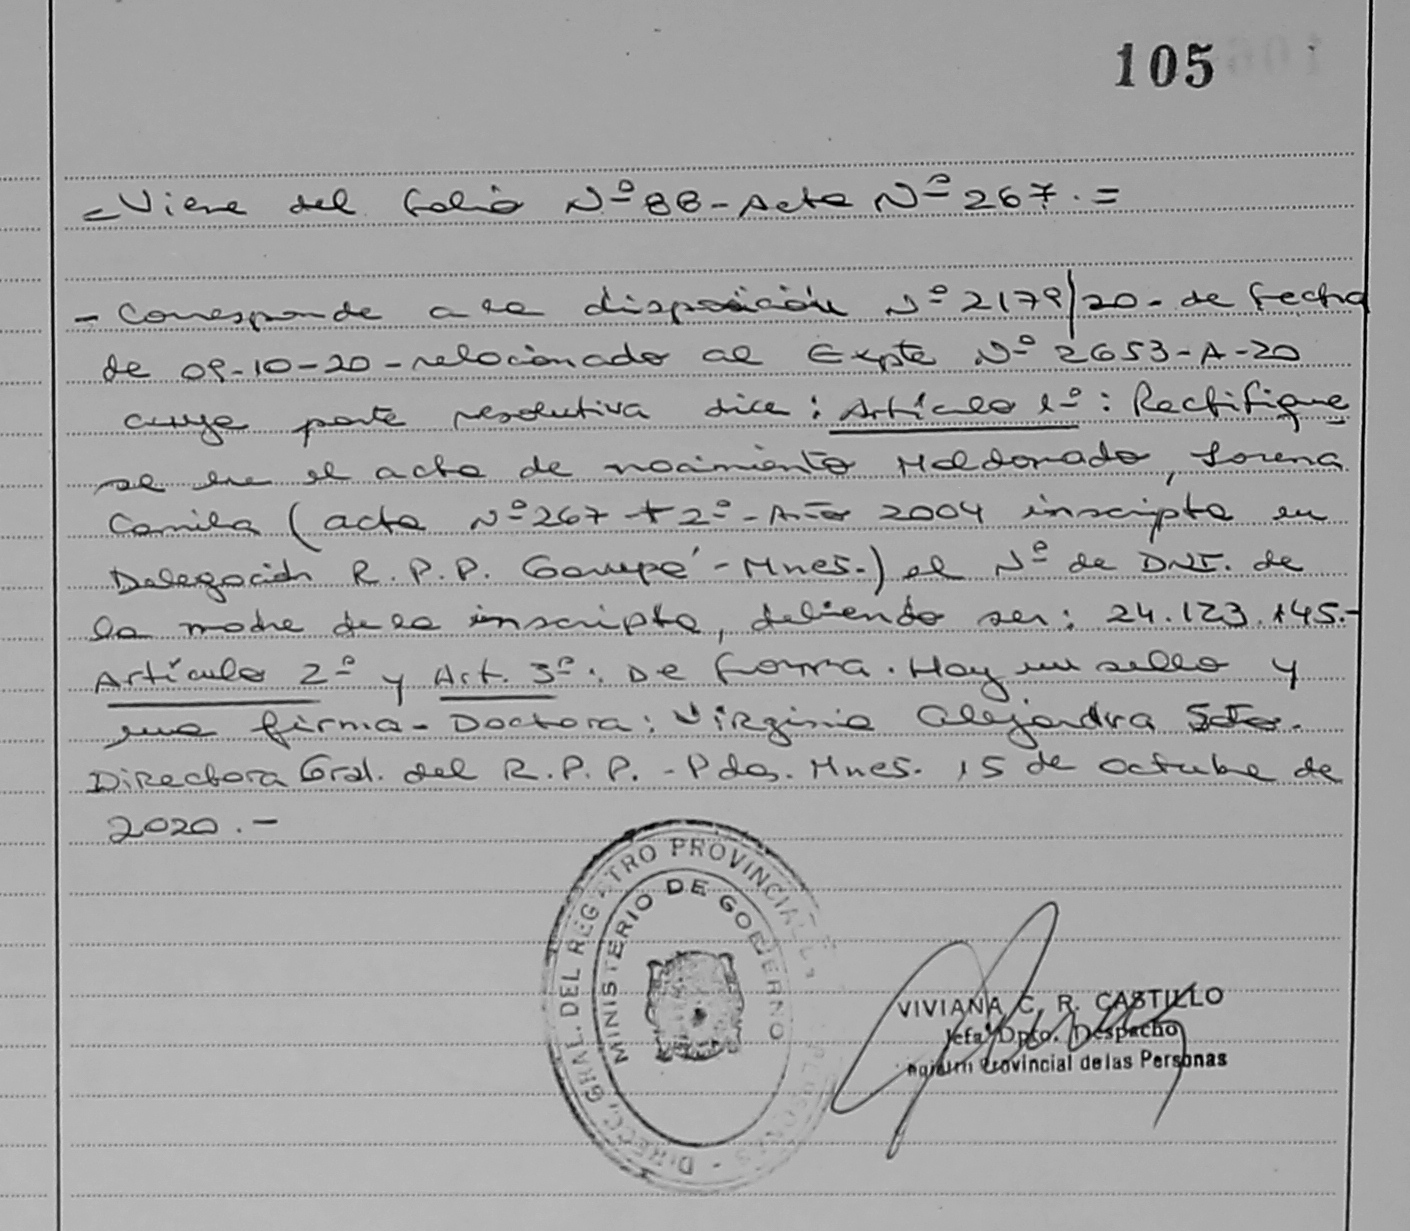 105
= Viene del folio Nº 88 - Acta Nº 267. =
- Corresponde a la disposición Nº 2179/20 - de fecha
de 09-10-20 - relacionado al Expte Nº 2653-A-20
cuya parte resolutiva dice: Artículo 1º: Rectifique
se en el acta de nacimiento Maldonado, Lorena
Camila (acta Nº 267 Tº 2º - Año 2004 inscripta en
Delegación R.P.P. Garupá - Mnes.) el Nº de DNI. de
la madre de la inscripta, debiendo ser: 24.123.145.-
Artículo 2º y Art. 3º: De forma. Hay un sello y
una firma - Doctora: Virginia Alejandra
Directora Gral. del R.P.P. - Pdas. Mnes. 15 de octubre de
2020. -
DIRECC. GRAL. DEL REGISTRO PROVINCIAL DE LAS PERSONAS
MINISTERIO DE GOBIERNO
VIVIANA C. R. CASTILLO
Jefa Dpto. Despacho
Registro Provincial de las Personas